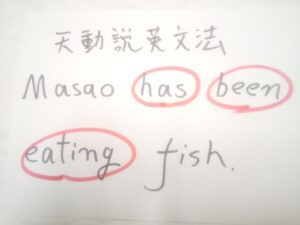 天動説英文法
Masao has been
eating fish.